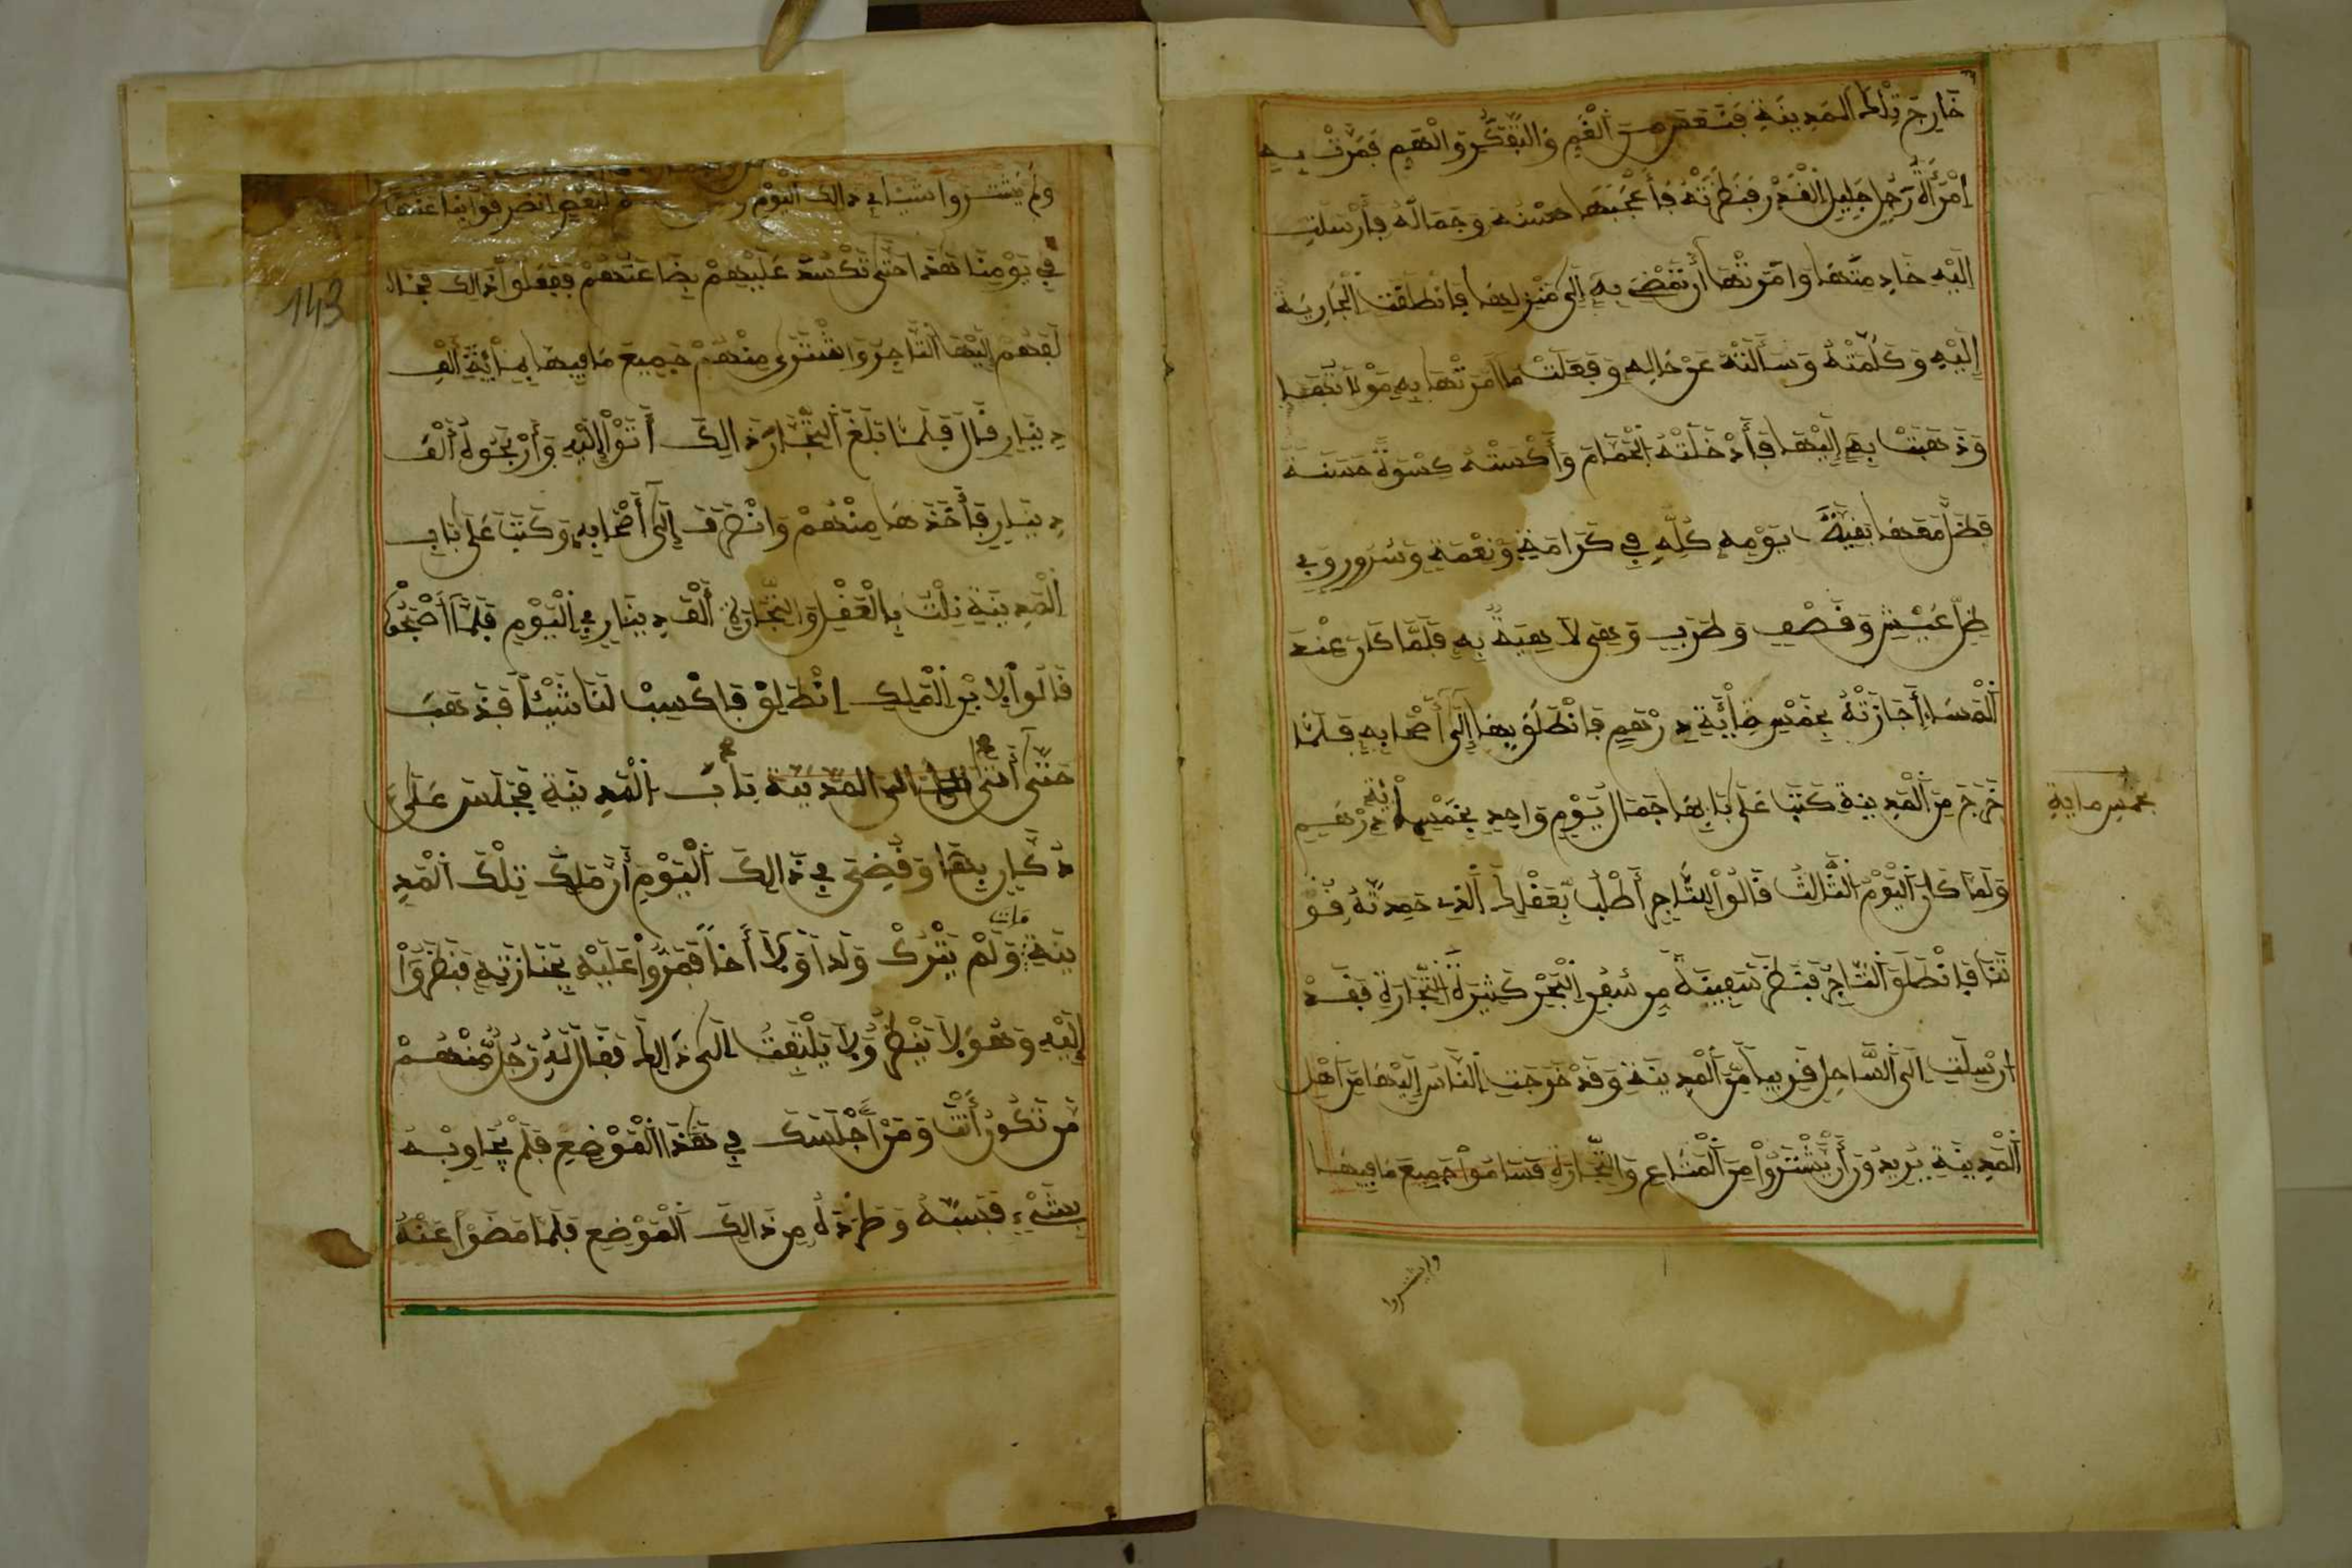 خَارِجَ تِلْكَ الْمَدِينَةِ فَنَعَسَ مِنَ الْغَمِّ وَالتَّفَكُّرِ وَالْهَمِّ فَمَرَّتْ بِهِ
اِمْرَأَةُ رَجُلٍ جَلِيلِ الْقَدْرِ فَنَظَرَتْهُ فَأَعْجَبَهَا حُسْنُهُ وَجَمَالُهُ فَأَرْسَلَتِ
إِلَيْهِ خَادِمَتَهَا وَأَمَرَتْهَا أَنْ تَمْضِيَ بِهِ إِلَى مَنْزِلِهَا فَانْطَلَقَتِ الْجَارِيَةُ
إِلَيْهِ وَكَلَّمَتْهُ وَسَأَلَتْهُ عَنْ حَالِهِ وَفَعَلَتْ مَا أَمَرَتْهَا بِهِ مَوْلَاتُهَا
وَذَهَبَتْ بِهِ إِلَيْهَا فَأَدْخَلَتْهُ الْحَمَّامَ وَأَكْسَتْهُ كِسْوَةً حَسَنَةً
فَظَلَّ مَعَهَا بَقِيَّةَ يَوْمِهِ كُلِّهِ فِي كَرَامَةٍ وَنِعْمَةٍ وَسُرُورٍ وَفِي
ظِلِّ عَيْشٍ وَقَصْفٍ وَطَرَبٍ وَهِيَ لَاهِيَةٌ بِهِ فَلَمَّا كَانَ عِنْدَ
الْمَسَاءِ أَجَازَتْهُ بِخَمْسِ مِائَةِ دِرْهَمٍ فَانْطَلَقَ بِهَا إِلَى أَصْحَابِهِ فَلَمَّا
خَرَجَ مِنَ الْمَدِينَةِ كَتَبَ عَلَى بَابِهَا جَمَالُ يَوْمٍ وَاحِدٍ بِخَمْسِمِائَةِ دِرْهَمٍ
بخمس ماية
وَلَمَّا كَانَ الْيَوْمُ الثَّالِثُ قَالُوا لِلتَّاجِرِ أَطْلُبْ بِعَقْلِكَ الَّذِي حَمِدْتَهُ قُوْ
تَنَا فَانْطَلَقَ التَّاجِرُ فَنَظَرَ سَفِينَةً مِنْ سُفُنِ الْبَحْرِ كَثِيرَةَ التِّجَارَةِ فَقَدْ
ارْسَلَتِ الَى السَّاحِلِ قَرِيبًا مِنَ الْمَدِينَةِ وَقَدْ خَرَجَتِ النَّاسُ إِلَيْهَا مِنْ أَهْلِ
الْمَدِينَةِ يُرِيدُونَ أَنْ يَشْتَرُوا مِنَ الْمَتَاعِ وَالتِّجَارَةِ فَسَامَوْا جَمِيعَ مَا فِيهَا
ولم يشتروا
143
وَلَمْ يَشْتَرُوا شَيْئًا فِي ذَالِكَ الْيَوْمِ لِبَعْضٍ انْصَرِفُوا بِنَا عَنْهَا
فِي يَوْمِنَا هَذَا حَتَّى تَكْسُدَ عَلَيْهِمْ بِضَاعَتُهُمْ فَفَعَلُوا ذَالِكَ فَجَاءَ
إِلَيْهَا التَّاجِرُ وَاشْتَرَى مِنْهُمْ جَمِيعَ مَا فِيهَا بِمِائَةِ أَلْفِ
دِينَارٍ قَالَ فَلَمَّا بَلَغَ التُّجَّارَ ذَالِكَ أَتَوْا إِلَيْهِ وَأَرْبَحُوهُ أَلْفَ
دِينَارٍ فَأَخَذَهَا مِنْهُمْ وَانْصَرَفَ إِلَى أَصْحَابِهِ وَكَتَبَ عَلَى بَابِ
الْمَدِينَةِ نِلْتُ بِالْعَقْلِ وَالتِّجَارَةِ أَلْفَ دِينَارٍ فِي الْيَوْمِ فَلَمَّا أَصْبَحُوا
قَالُوا لِابْنِ الْمَلِكِ انْطَلِقْ فَاكْسِبْ لَنَا شَيْئًا فَذَهَبَ
حَتَّى أَتَى الى المدينة بَابَ الْمَدِينَةِ فَجَلَسَ عَلَى
دُكَّانٍ بِهَا وَقُضِيَ فِي ذَالِكَ الْيَوْمِ أَنَّ مَلِكَ تِلْكَ الْمَدِ
ينَةِ مَاتَ وَلَمْ يَتْرُكْ وَلَدًا وَلَا أَخًا فَمَرُّوا عَلَيْهِ بِجَنَازَتِهِ فَنَظَرُوا
إِلَيْهِ وَهُوَ لَا يَنْظُرُ وَلَا يَلْتَفِتُ إِلَى ذَالِكَ فَقَالَ لَهُ رَجُلٌ مِنْهُمْ
مَنْ تَكُونُ أَنْتَ وَمَنْ أَجْلَسَكَ فِي هَذَا الْمَوْضِعِ فَلَمْ يُجَاوِبْهُ
بِشَيْءٍ فَسَبَّهُ وَطَرَدَهُ مِنْ ذَالِكَ الْمَوْضِعِ فَلَمَّا مَضَوْا عَنْهُ